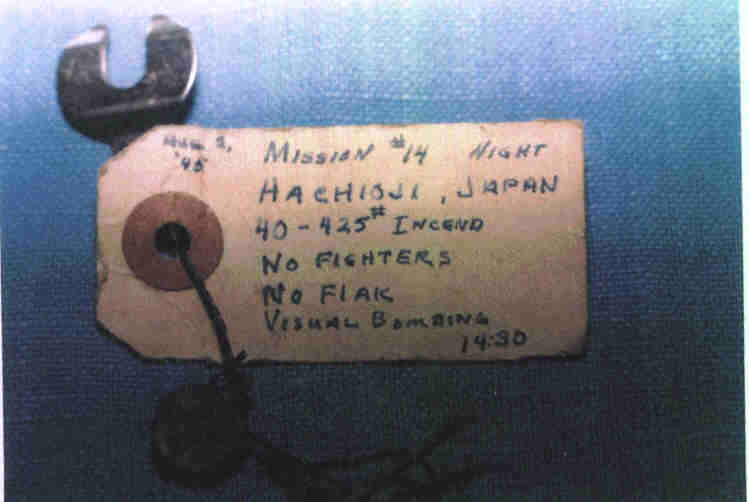 '45
MISSION #14 NIGHT
HACHIOJI, JAPAN
40-425# INCEND
NO FIGHTERS
NO FLAK
VISUAL BOMBING
14:30